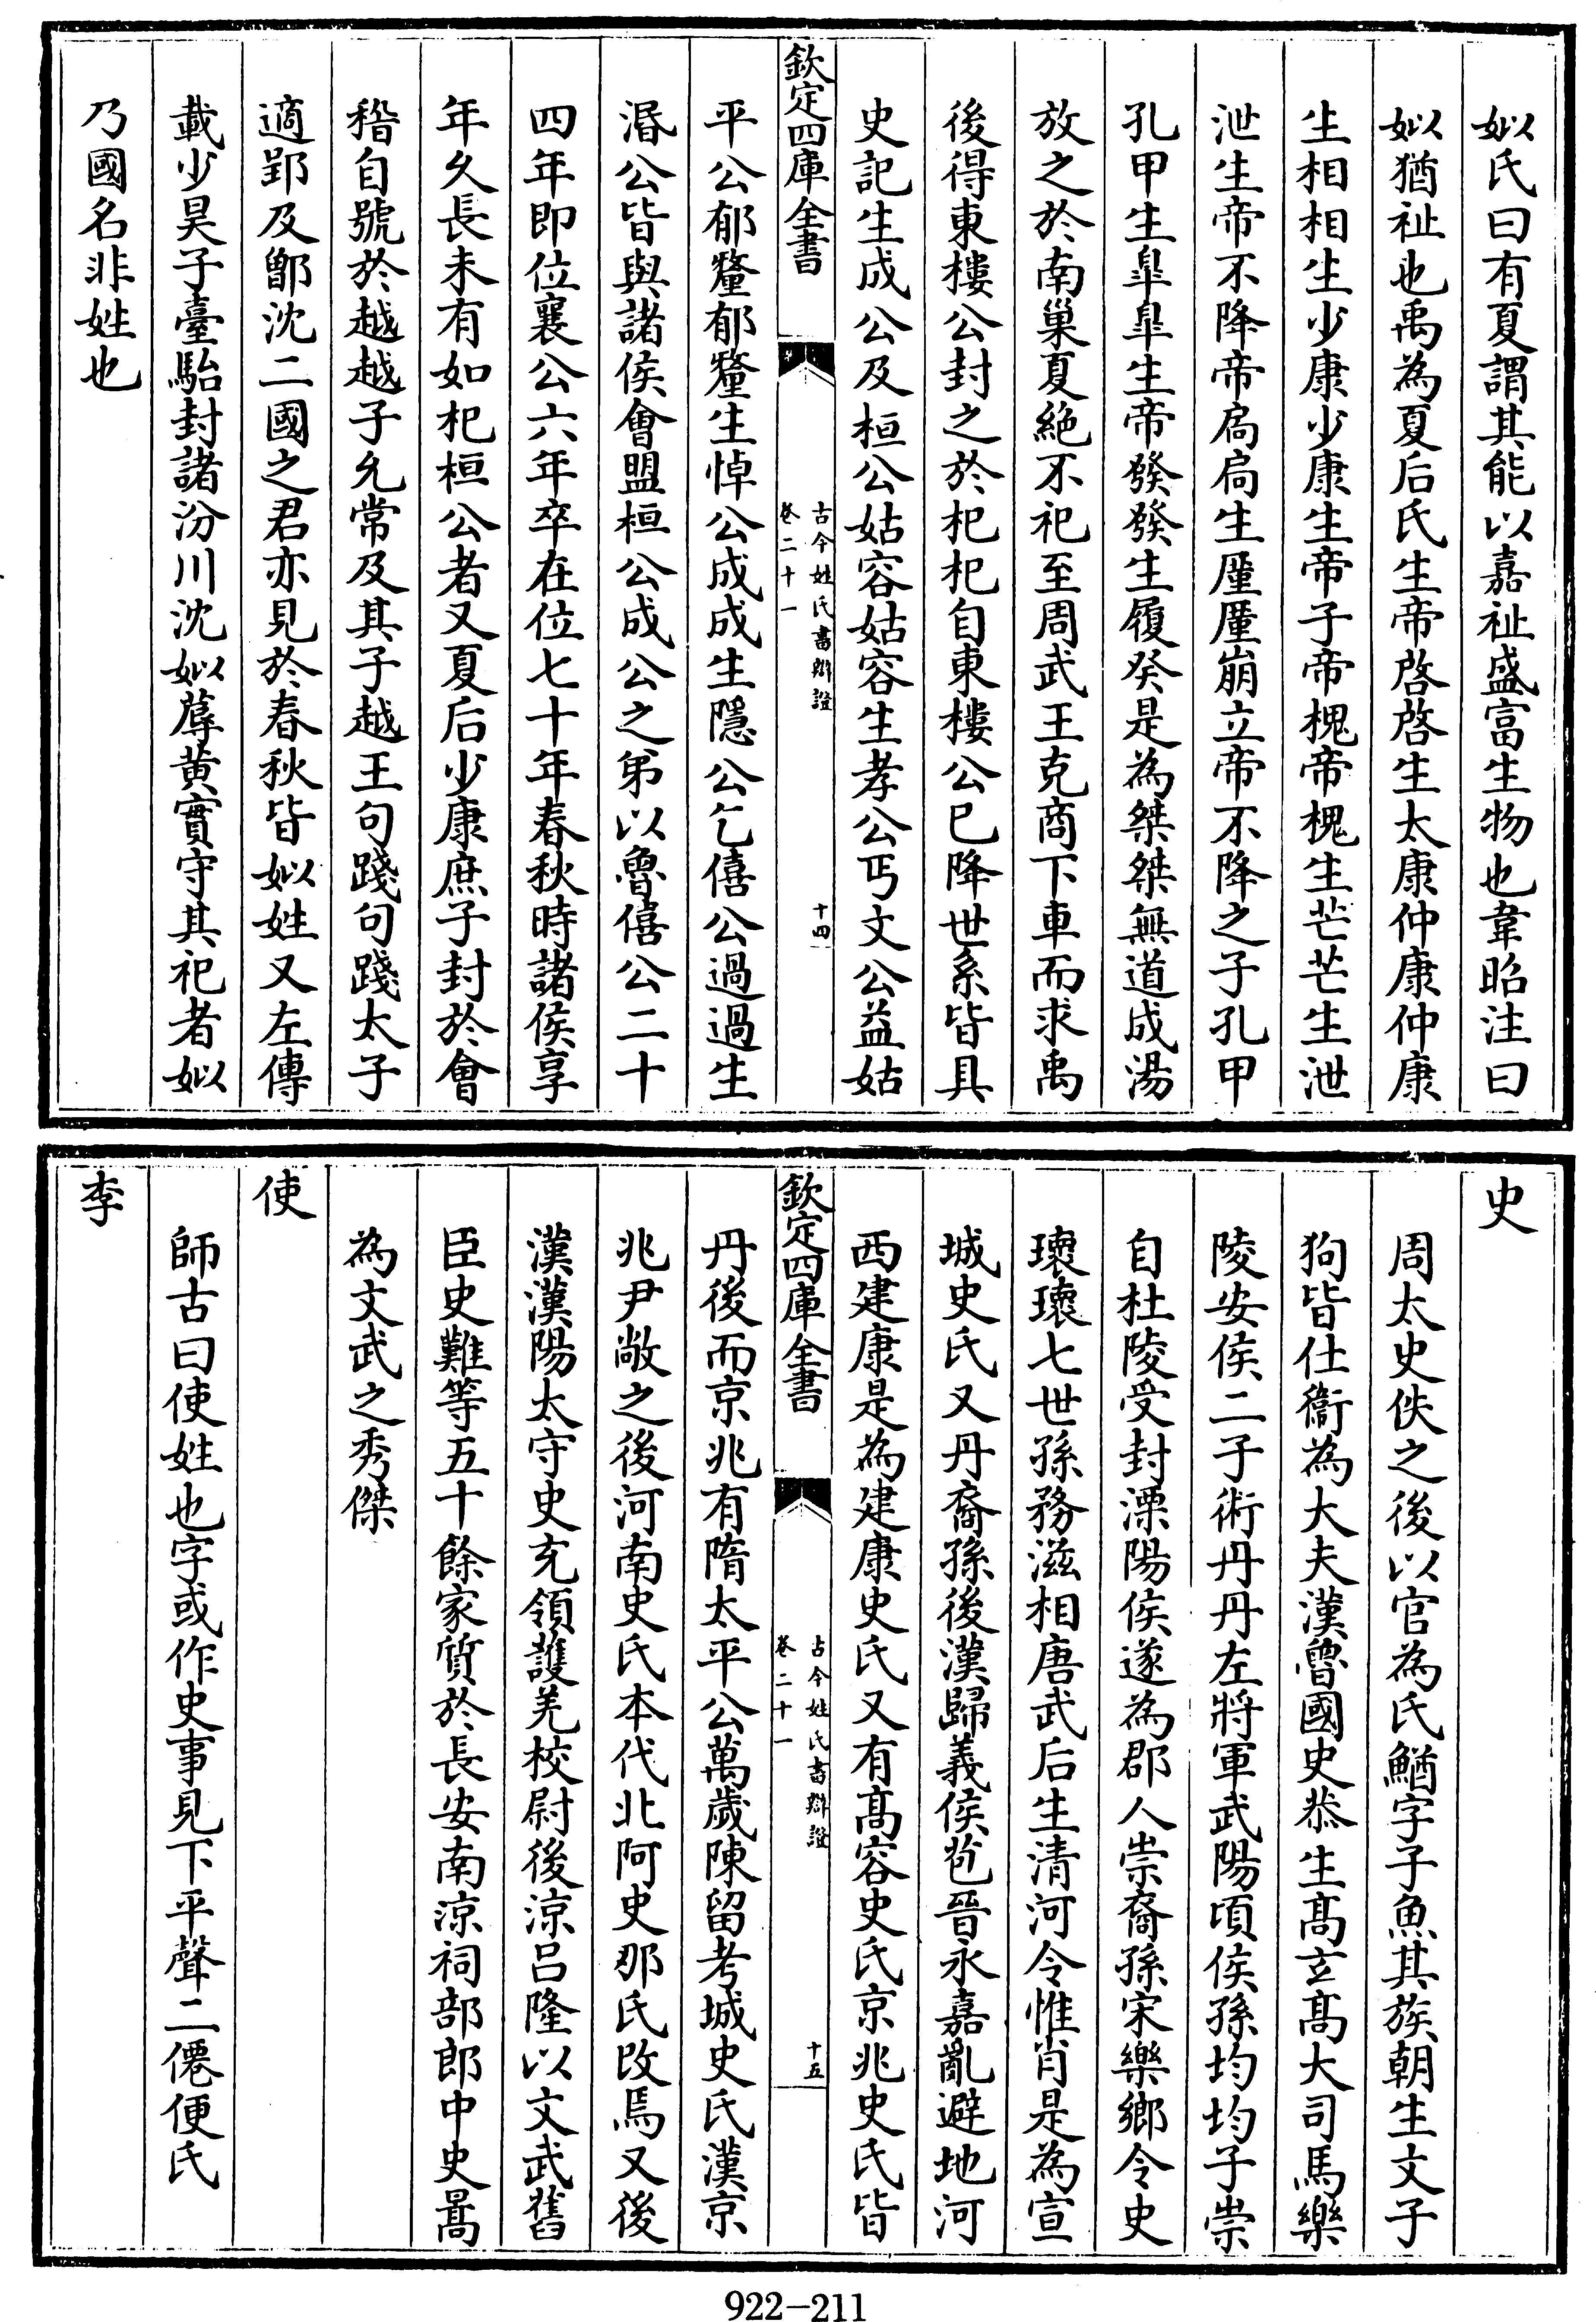 姒氏曰有夏謂其能以嘉祉盛富生物也韋昭注曰
姒猶祉也禹為夏后氏生帝啓啓生太康仲康仲康
生相相生少康少康生帝子帝槐帝槐生芒芒生泄
泄生帝不降帝扃扃生廑廑崩立帝不降之子孔甲
孔甲生臯臯生帝發發生履癸是為桀桀無道成湯
放之於南巢夏絶不祀至周武王克商下車而求禹
後得東樓公封之於杞杞自東樓公已降世系皆具
史記生成公及桓公姑容姑容生孝公丐文公益姑
欽定四庫全書
古今姓氏書辯證
卷二十一
十四
平公郁釐郁釐生悼公成成生隱公乞僖公過過生
湣公皆與諸侯會盟桓公成公之弟以魯僖公二十
四年即位襄公六年卒在位七十年春秋時諸侯享
年久長未有如杞桓公者又夏后少康庶子封於會
稽自號於越越子允常及其子越王句踐句踐太子
適郢及鄫沈二國之君亦見於春秋皆姒姓又左傳
載少昊子臺駘封諸汾川沈姒蓐黄實守其祀者姒
乃國名非姓也
史
周太史佚之後以官為氏鰌字子魚其族朝生文子
狗皆仕衞為大夫漢魯國史恭生髙玄髙大司馬樂
陵安侯二子術丹丹左將軍武陽頃侯孫均均子崇
自杜陵受封溧陽侯遂為郡人崇裔孫宋樂鄉令史
瓌瓌七世孫務滋相唐武后生清河令惟肖是為宣
城史氏又丹裔孫後漢歸義侯苞晉永嘉亂避地河
西建康是為建康史氏又有髙容史氏京兆史氏皆
欽定四庫全書
古今姓氏書辯證
卷二十一
十五
丹後而京兆有隋太平公萬歲陳留考城史氏漢京
兆尹敞之後河南史氏本代北阿史那氏改焉又後
漢漢陽太守史充領護羌校尉後涼呂隆以文武舊
臣史難等五十餘家質於長安南涼祠部郎中史暠
為文武之秀傑
使
師古曰使姓也字或作史事見下平聲二僊便氏
李
922-211